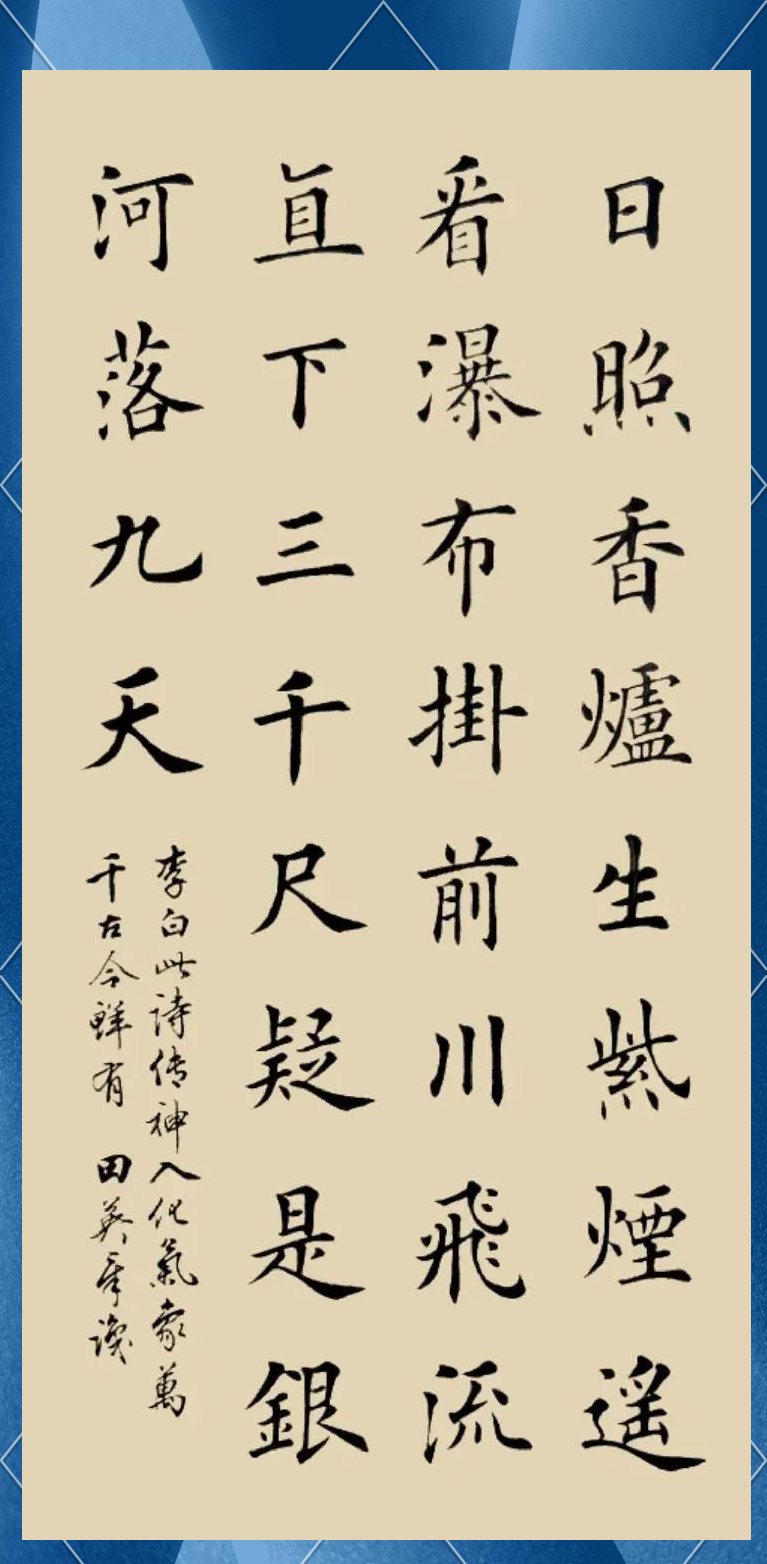 日照香爐生紫煙遥
看瀑布掛前川飛流
直下三千尺疑是銀
河落九天
李白此诗传神入化氣象萬
千古今鮮有 田英章